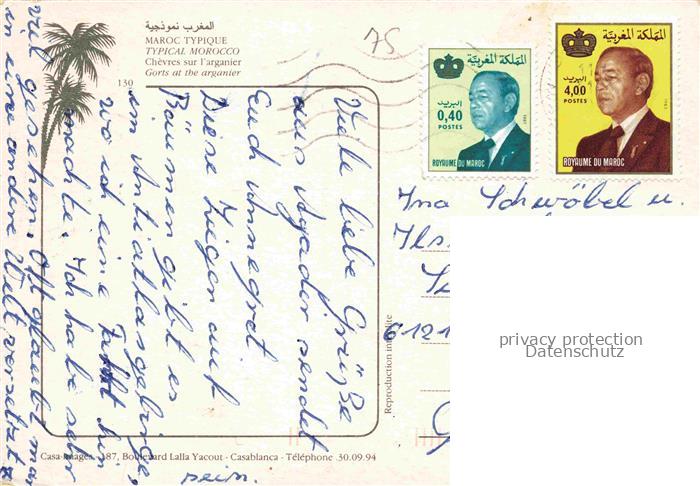 المغرب نموذجية
MAROC TYPIQUE
TYPICAL MOROCCO
Chèvres sur l'arganier
Gorts at the arganier
130
75
المملكة المغربية
البريد
0,40
POSTES
1981
ROYAUME DU MAROC
المملكة المغربية
البريد
4,00
POSTES
ROYAUME DU MAROC
Viele liebe Grüße
aus Agadir sendet
Euch Annegret
Diese Ziegen auf
Bäumen gibt es
im Antiatlasgebirge,
wo ich eine Fahrt hin
machte. Ich habe sehr
viel gesehen. Oft glaubt man
in eine andere Welt versetzt z
sein.
Ina Schwöbel u.
Ils
6121
Reproduction interdite
privacy protection
Datenschutz
Casa-Images - 187, Boulevard Lalla Yacout - Casablanca - Téléphone 30.09.94